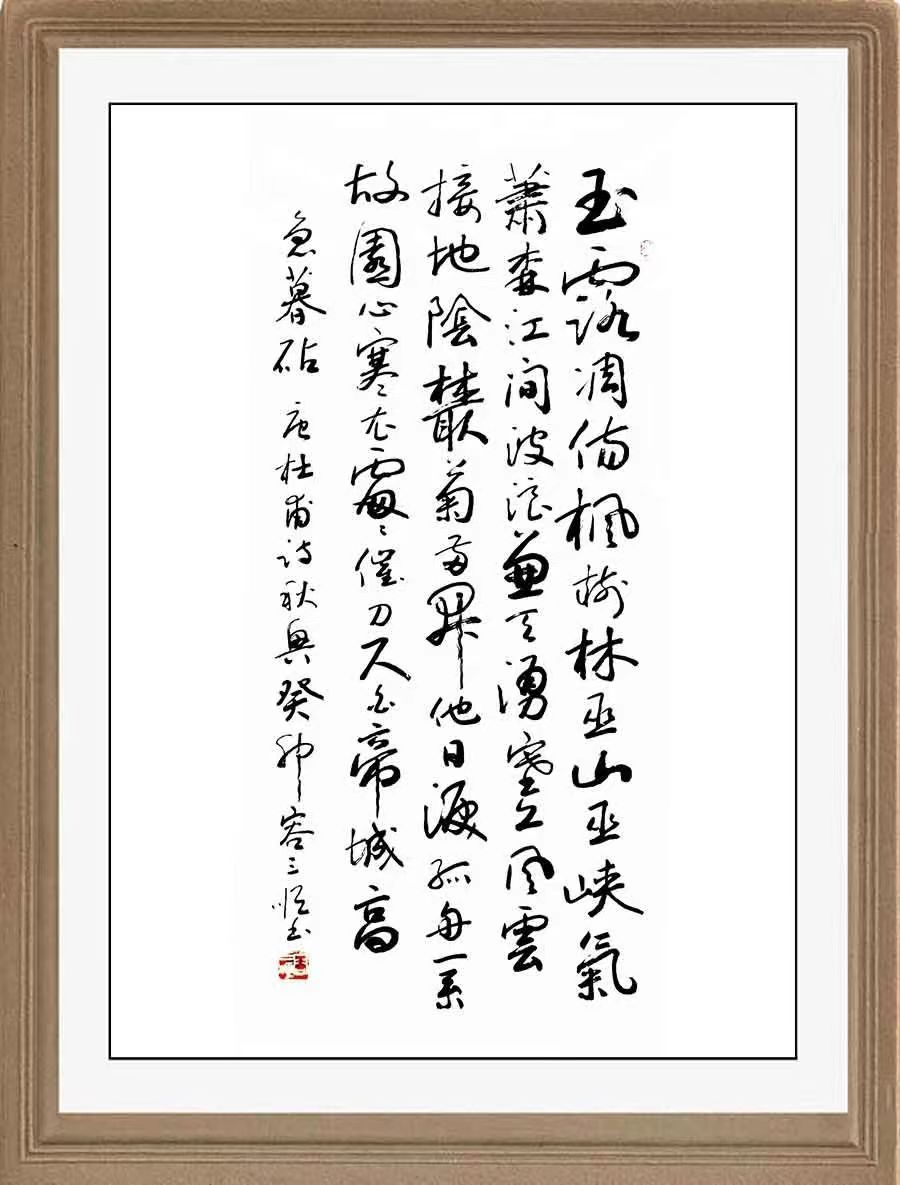 玉露凋傷楓樹林巫山巫峡氣
蕭森江间波浪兼天湧塞上风雲
接地陰叢菊两開他日淚孤舟一系
故園心寒衣處々催刀尺白帝城高
急暮砧 唐杜甫诗秋興癸卯 三 书